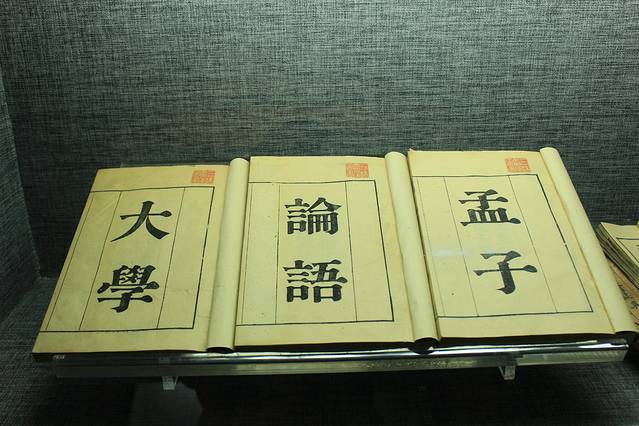 大學
論語
孟子